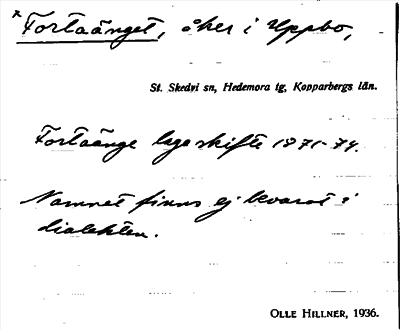 *Fortaänget, åker i Uppbo,
St. Skedvi sn, Hedemora tg, Kopparbergs län.
Fortaänge laga skifte 1871-74.
Namnet finns ej bevarat i
dialekten.
OLLE HILLNER, 1936.